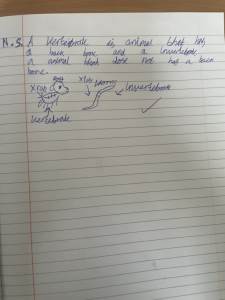 N.S. A Vertebrate is animal that has
a back bone and a invertebrate
a animal that dose not has a back
bone.
Xray Xray
Invertebrate
Vertebrate